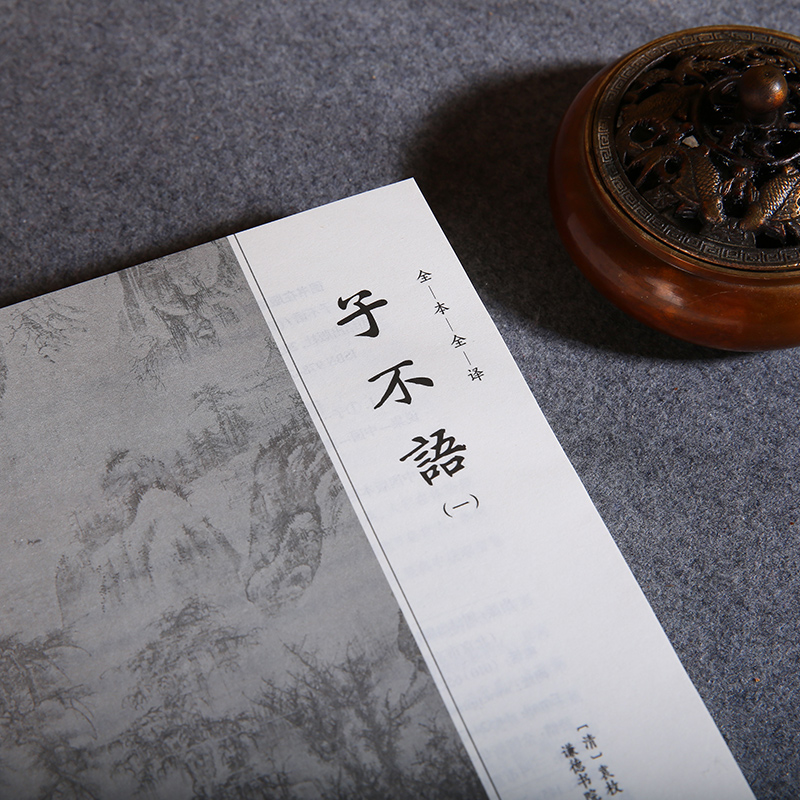 全—本—全—译
子不語
（一）
［清］袁枚
谦德书院